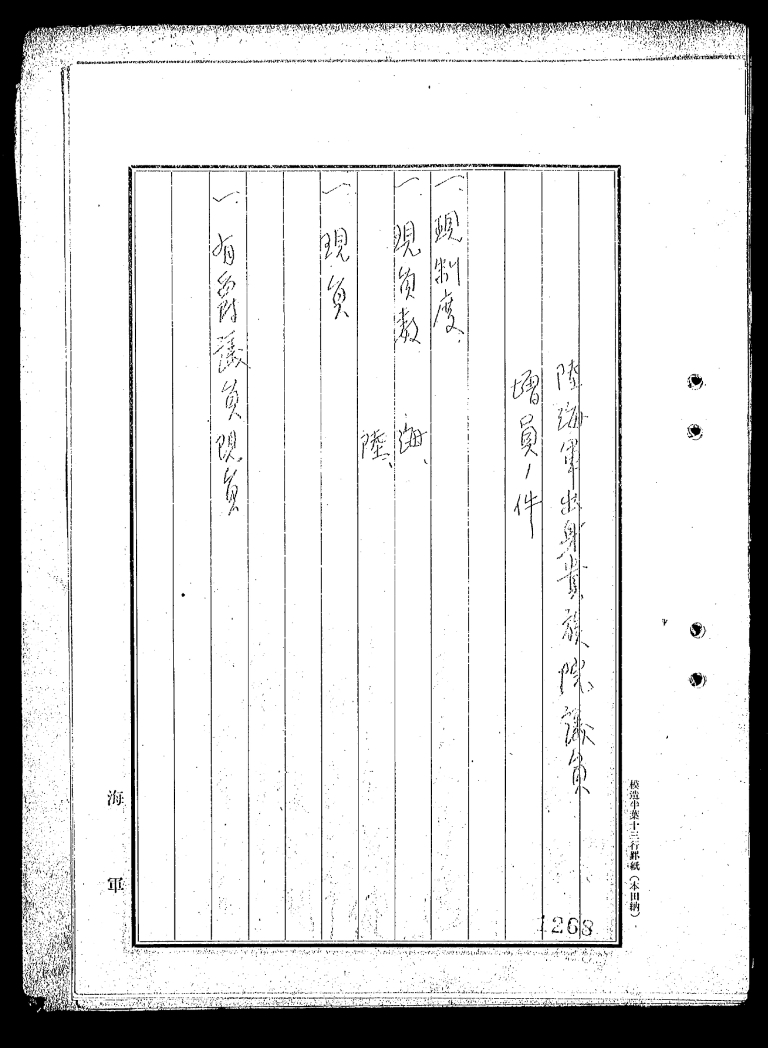 陸海軍出身貴族院議員
増員ノ件
一、現制度
一、現員数 海、
陸、
一、現員
一、有爵議員現員
海軍
模造半葉十三行罫紙(本田納)
1268